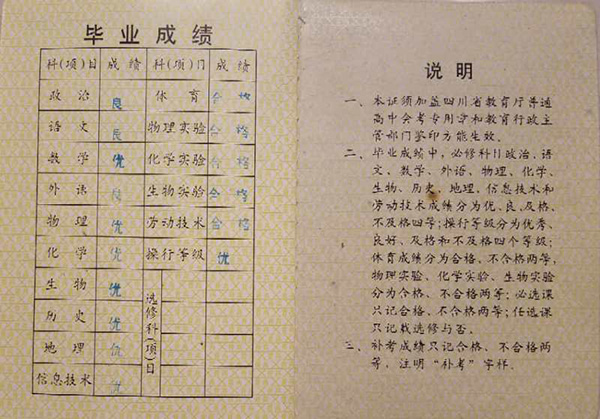 毕业成绩
科(项)目 成绩 科(项)门 成绩
政治 良 体育 合格
语文 良 物理实验 合格
数学 优 化学实验 合格
外语 良 生物实验 合格
物理 优 劳动技术 合格
化学 优 操行等级 优
生物 优 选修科(项)目
历史 优
地理 优
信息技术 优
说明
一、本证须加盖四川省教育厅普通
高中会考专用章和教育行政主
管部门签印方能生效。
二、毕业成绩中，必修科目政治、语
文、数学、外语、物理、化学、
生物、历史、地理、信息技术和
劳动技术成绩分为优、良、及格、
不及格四等；操行等级分为优秀、
良好、及格和不及格四个等级；
体育成绩分为合格、不合格两等，
物理实验、化学实验、生物实验
分为合格、不合格两等；必选课
只记合格、不合格两等；任选课
只记载选修与否。
三、补考成绩只记合格、不合格两
等，注明“补考”字样.